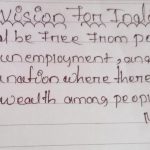 Vision For Ind
l be Free From po
unemployment, and
nation where there
wealth among peop